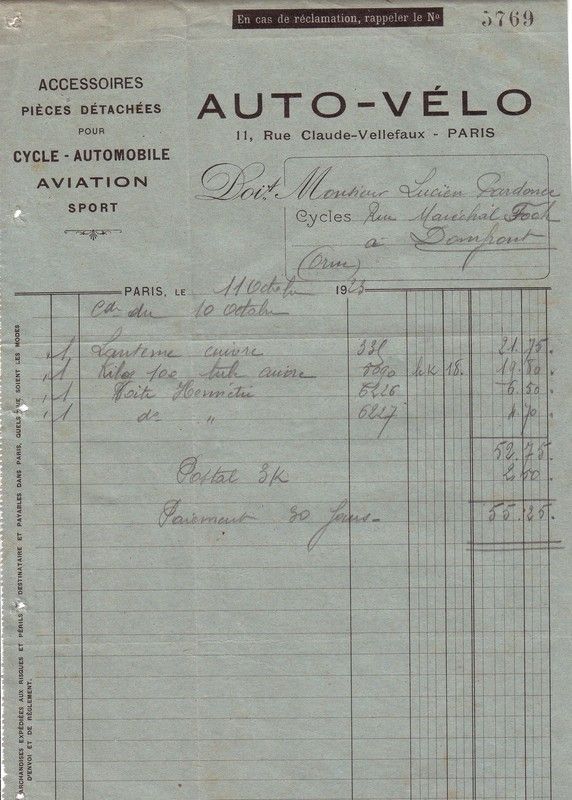 En cas de réclamation, rappeler le No 5769
ACCESSOIRES
PIÈCES DÉTACHÉES
POUR
CYCLE - AUTOMOBILE
AVIATION
SPORT
AUTO-VÉLO
11, Rue Claude-Vellefaux - PARIS
Doit Monsieur Lucien
Cycles Rue Maréchal Foch
à Domfront
(Orne)
PARIS, LE 11 Octobre 1923
Cde du 10 Octobre
1 Lanterne cuivre 335 21.75.
1 Kilog 100 tube cuivre 5000 1k 18. 19.80.
1 Boite 6226 6.50.
1 do " 6227 4.70.
52.75.
Postal 3K 2.50.
Paiement 30 Jours - 55.25.
MARCHANDISES EXPÉDIÉES AUX RISQUES ET PÉRILS DU DESTINATAIRE ET PAYABLES DANS PARIS, QUELS QUE SOIENT LES MODES
D'ENVOI ET DE RÈGLEMENT.